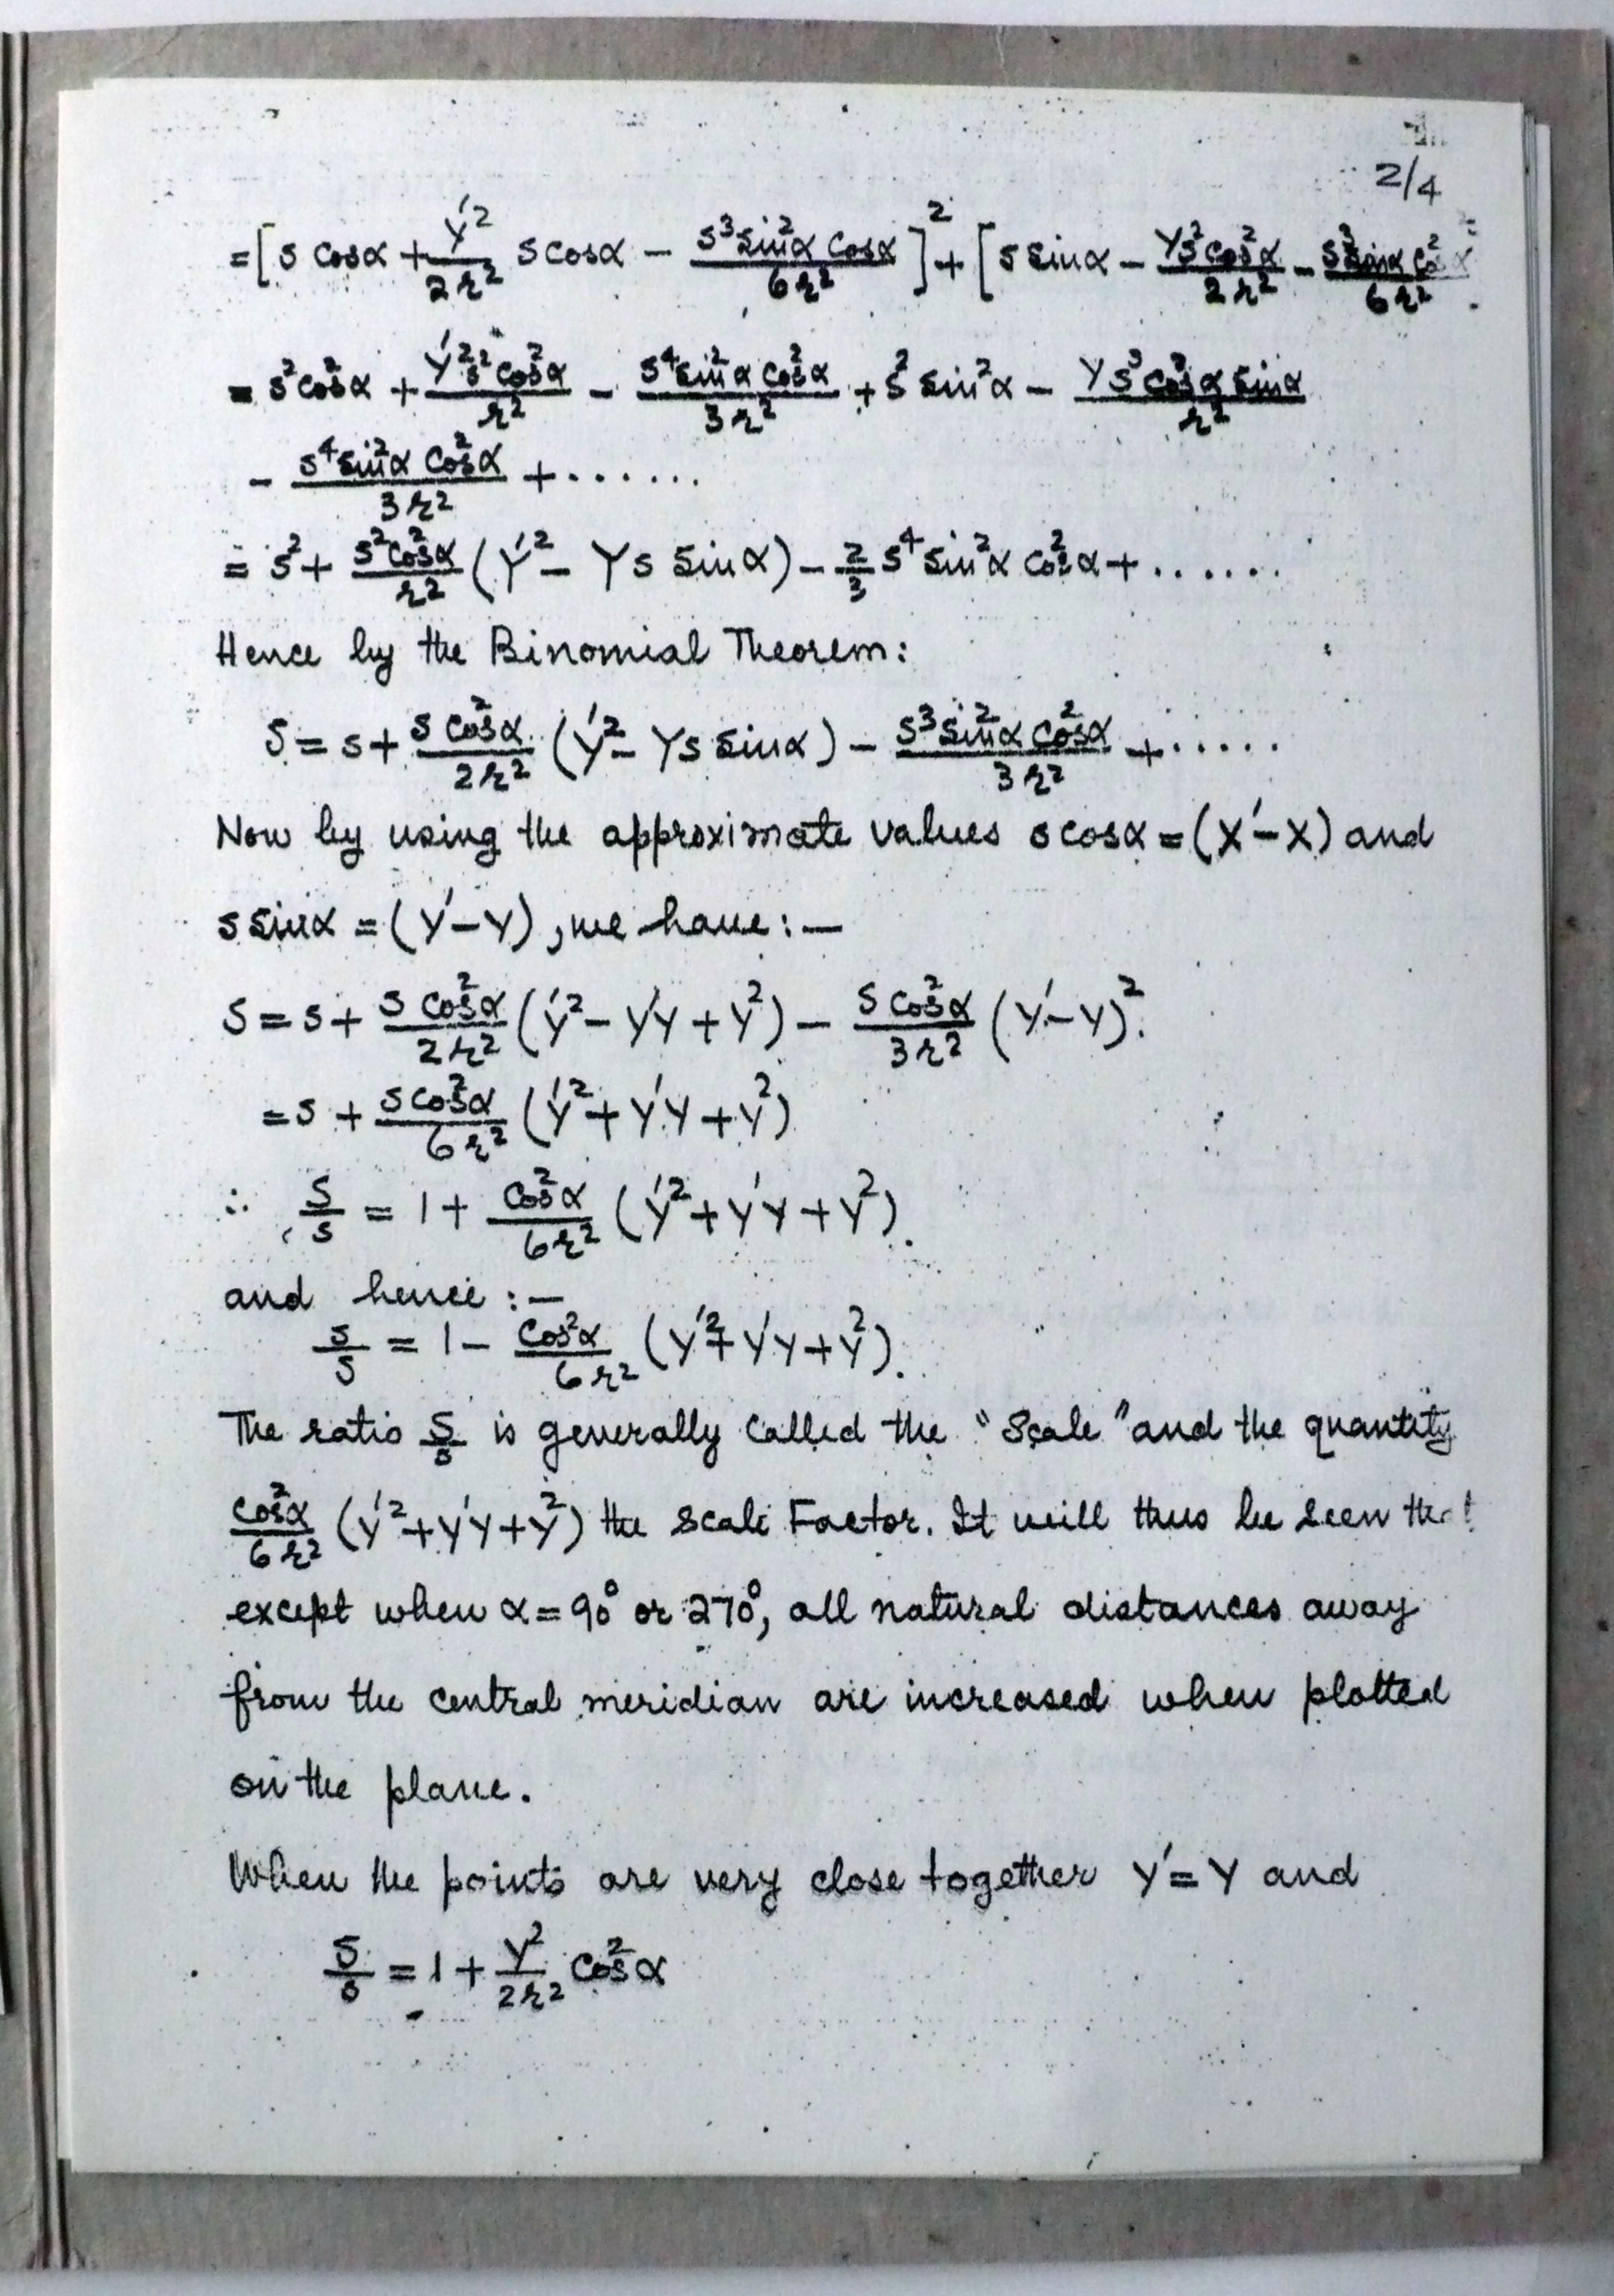 2/4
= [s Cosα + Y′²/2r² s cosα − s³sin²α Cosα/6r²]² + [s sinα − Ys²cos²α/2r² − s³sinα cos²α/6r²
= s²cos²α + Y′²s²cos²α/r² − s⁴sin²α cos²α/3r² + s² sin²α − Ys³cos²α sinα/r²
− s⁴sin²α Cos²α/3r² + .......
= s² + s²cos²α/r² (Y′² − Ys sinα) − 2/3 s⁴ sin²α cos²α + ......
Hence by the Binomial Theorem:
S = s + s cos²α/2r² (Y′² − Ys sinα) − s³sin²α cos²α/3r² + ......
Now by using the approximate values s cosα = (X′ − X) and
s sinα = (Y′ − Y), we have :—
S = s + s cos²α/2r² (Y′² − Y′Y + Y²) − s cos²α/3r² (Y′ − Y)².
= s + s cos²α/6r² (Y′² + Y′Y + Y²)
∴ S/s = 1 + cos²α/6r² (Y′² + Y′Y + Y²).
and hence :—
s/S = 1 − Cos²α/6r² (Y′² + Y′Y + Y²).
The ratio S/s is generally called the "Scale" and the quantity
cos²α/6r² (Y′² + Y′Y + Y²) the Scale Factor. It will thus be seen that
except when α = 90° or 270°, all natural distances away
from the central meridian are increased when plotted
on the plane.
When the points are very close together Y′ = Y and
S/s = 1 + Y²/2r² Cos²α